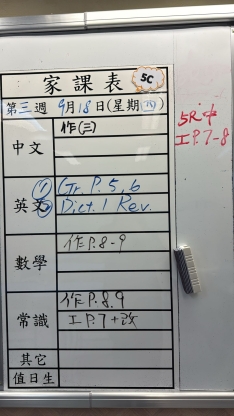 家課表 5C
第三週 9月18日(星期四)
中文 作(三)
英文 ① Gr. P.5,6
② Dict.1 Rev.
數學 作P.8-9
常識 作P.8,9
工P.7+改
其它
值日生
5R中
工P.7-8